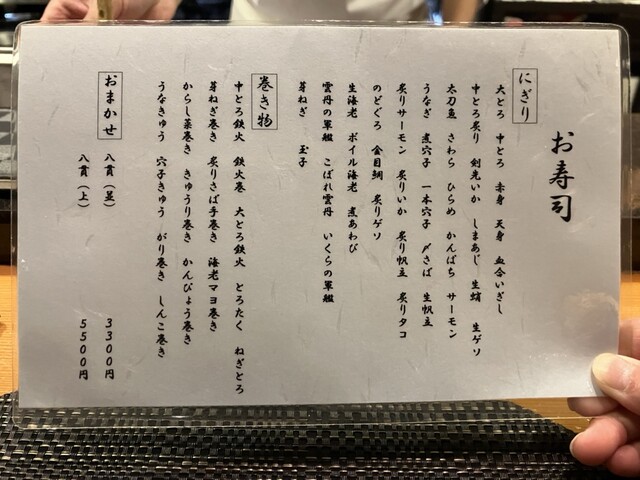 お寿司
にぎり
大とろ 中とろ 赤身 天身 血合いぎし
中とろ炙り 剣先いか しまあじ 生蛸 生ゲソ
太刀魚 さわら ひらめ かんぱち サーモン
うなぎ 煮穴子 一本穴子 〆さば 生帆立
炙りサーモン 炙りいか 炙り帆立 炙りタコ
のどぐろ 金目鯛 炙りゲソ
生海老 ボイル海老 煮あわび
雲丹の軍艦 こぼれ雲丹 いくらの軍艦
芽ねぎ 玉子
巻き物
中とろ鉄火 鉄火巻 大とろ鉄火 とろたく ねぎとろ
芽ねぎ巻き 炙りさば手巻き 海老マヨ巻き
からし菜巻き きゅうり巻き かんぴょう巻き
うなきゅう 穴子きゅう がり巻き しんこ巻き
おまかせ
八貫(並) 3300円
八貫(上) 5500円